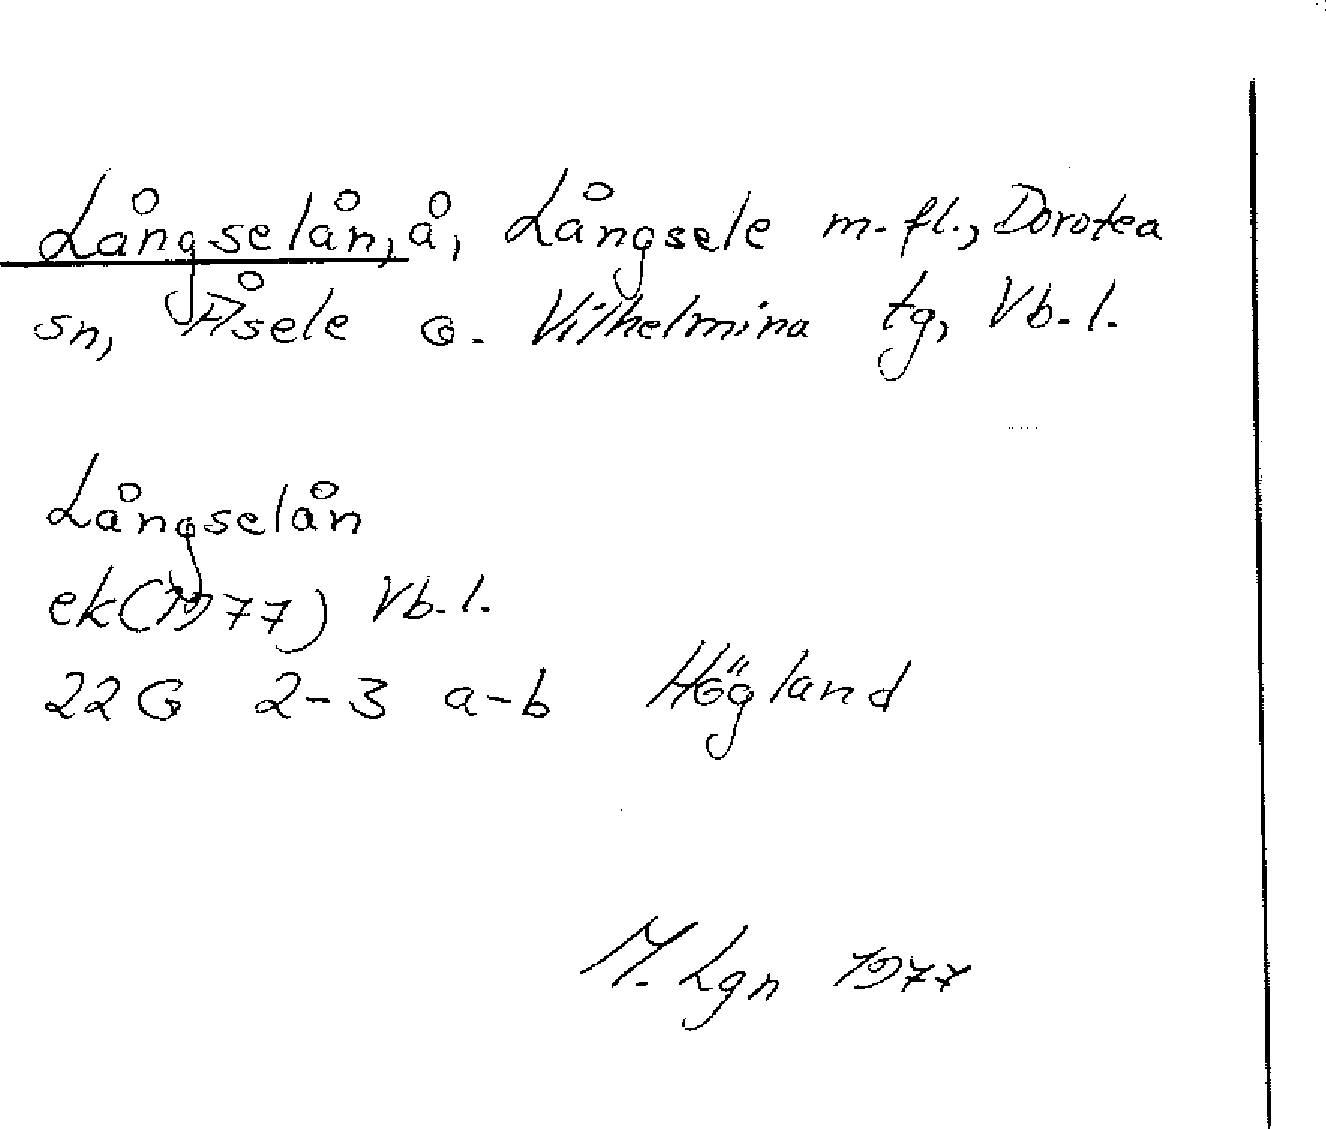 Långselån, å, Långsele m. fl., Dorotea
sn, Åsele o. Vilhelmina tg, Vb. l.
Långselån
ek(1977) Vb. l.
22G 2-3 a-b Högland
M. Lgn 1977